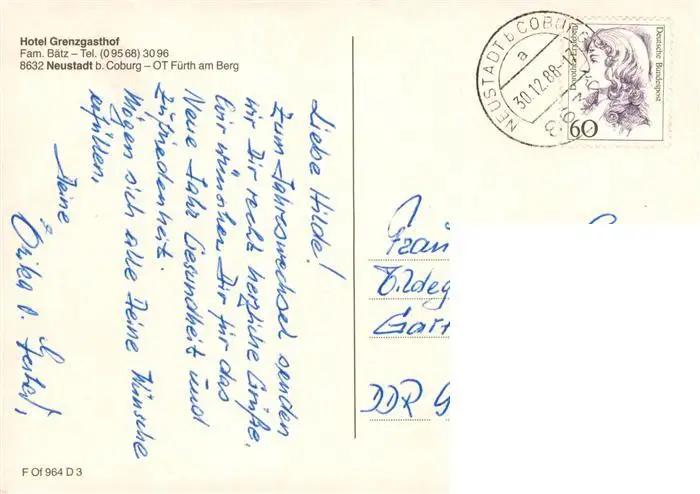 Hotel Grenzgasthof
Fam. Bätz – Tel. (0 95 68) 30 96
8632 Neustadt b. Coburg – OT Fürth am Berg
Liebe Hilde!
Zum Jahreswechsel senden
wir Dir recht herzliche Grüße.
Wir wünschen Dir für das
Neue Jahr Gesundheit und
Zufriedenheit.
Mögen sich alle Deine Wünsche
erfüllen,
Deine
Erika
F Of 964 D 3
NEUSTADT b COBURG
a
30.12.88
Deutsche Bundespost
60
Frau
DDR